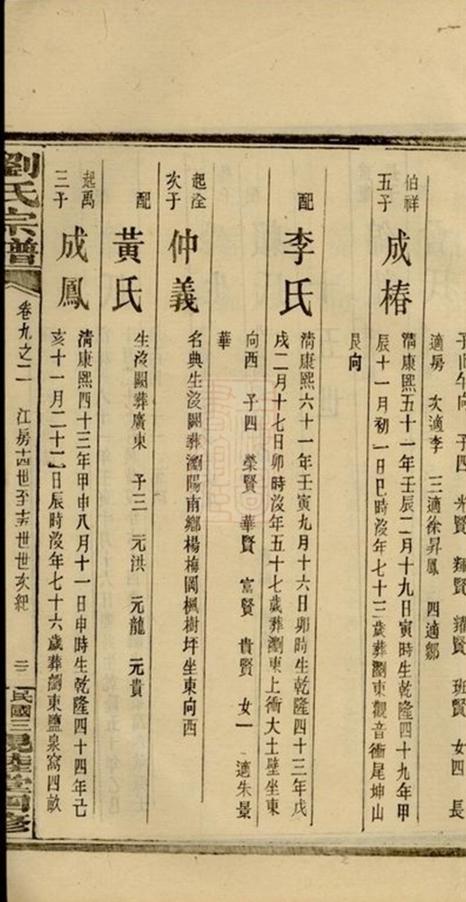 子山午向 子四 光賢 輝賢 耀賢 班賢 女四 長
適房 次適李 三適徐昇鳳 四適鄒
伯祥
五子
成椿
清康熙五十一年壬辰二月十九日寅時生乾隆四十九年甲
辰十一月初一日巳時沒年七十三歲葬瀏東觀音衝尾坤山
艮向
配
李氏
清康熙六十一年壬寅九月十六日卯時生乾隆四十三年戊
戌二月十七日卯時沒年五十七歲葬瀏東上衝大土壁坐東
向西 子四 榮賢 華賢 富賢 貴賢 女一 適朱景
華
起淦
次子
仲義
名典生沒闕葬瀏陽南鄉楊梅岡楓樹坪坐東向西
配
黃氏
生沒闕葬廣東 子三 元洪 元龍 元貴
起萬
三子
成鳳
清康熙四十三年甲申八月十一日申時生乾隆四十四年己
亥十一月二十二日辰時沒年七十六歲葬瀏東鹽泉窩四畝
劉氏宗譜
卷九之二 江房 世至 世世次紀
民國三